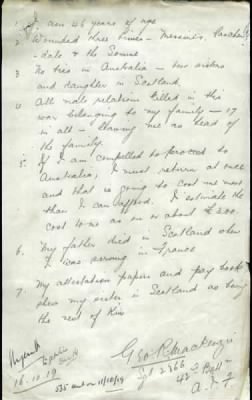 1. I am 46 years of age
2. Wounded three times - Messines, Passchen-
-dale & the Somme
3. No ties in Australia - two sisters
and daughter in Scotland
4. All male relations killed in this
war belonging to my family - 17
in all - leaving me as head of
the family.
5. If I am compelled to proceed to
Australia, I must return at once
and that is going to cost me more
than I can afford. I estimate the
cost to me as on or about £200.
6. My father died in Scotland when
I was serving in France
7. My attestation papers and pay book
show my sister in Scotland as being
the next of Kin
Geo R Mackenzie
Sgt 2866
42nd Battn
A.I.F
16.10.19
535 sent on 11/10/19